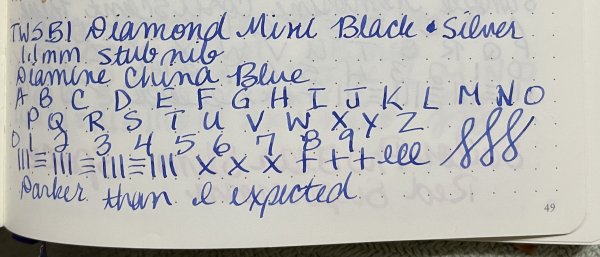 TWSBI Diamond Mini Black & Silver
1.1mm stub nib
Diamine China Blue
A B C D E F G H I J K L M N O
P Q R S T U V W X Y Z
0 1 2 3 4 5 6 7 8 9
|||≡|||≡|||≡||| x x x + + + eee
Darker than I expected
49